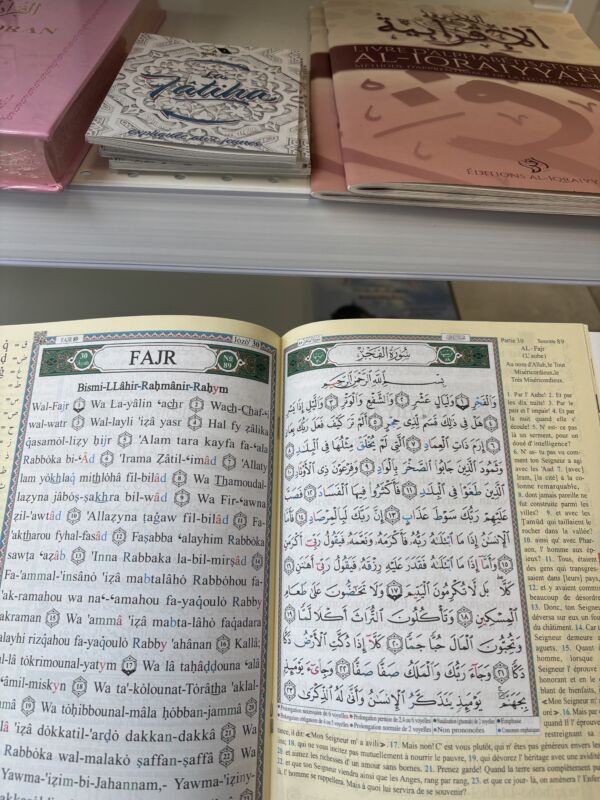 ORAN
La
Fâtiha
expliquée aux jeunes
الإقرائية
LIVRE D'ALPHABÉTISATION
AL-IQRAIYYAH
ÉDITIONS AL-IQRAIYY
FAJR 89
Jozô' 30
30
FAJR
No 89
Bismi-LLâhir-Raḥmânir-Raḥym
Wal-Fajr 1 Wa La-yâlin ʿachr 2 Wach-Chaf-ʿi
wal-watr 3 Wal-layli 'izâ yasr 4 Hal fy zâlika
qasamól-lizy ḥijr 5 'Alam tara kayfa fa-ʿala
Rabbóka bi-ʿÂd 6 'Irama Zâtil-ʿimâd 7 'Allaty
lam yókhlaq mithlóhâ fil-bilâd 8 Wa Thamoudal-
lazyna jâbóṣ-ṣakhra bil-wâd 9 Wa Fir-ʿawna
zil-'awtâd 10 'Allazyna ṭaġaw fil-bilâd 11 Fa-
'aktharou fyhal-fasâd 12 Faṣabba ʿalayhim Rabbóka
sawṭa ʿazâb 13 'Inna Rabbaka la-bil-mirṣâd 14
Fa-'ammal-'insânô 'izâ mabtalâhô Rabbóhou fa-
'ak-ramahou wa naʿ-ʿamahou fa-yaqoulô Rabby
'akraman 15 Wa 'ammâ 'izâ mabta-lâhô faqadara
ʿalayhi rizqahou fa-yaqoulô Rabby 'ahânan 16 Kallâ:
bal-lâ tókrimounal-yatym 17 Wa lâ taḥâḍḍouna ʿalâ
ṭaʿâmil-miskyn 18 Wa ta'-kólounat-Tórâtha 'aklal-
lammâ 19 Wa tóḥibbounal-mâla ḥóbban-jammâ 20
Kallâ 'izâ dókkatil-'arḍó dakkan-dakkâ 21 Wa
Rabbóka wal-malakó ṣaffan-ṣaffâ 22 Wa
Yawma-'izim-bi-Jahannam,- Yawma-'iziny-
سُورَةُ الْفَجْرِ
بِسْمِ اللَّهِ الرَّحْمَٰنِ الرَّحِيمِ
وَالْفَجْرِ ١ وَلَيَالٍ عَشْرٍ ٢ وَالشَّفْعِ وَالْوَتْرِ ٣ وَاللَّيْلِ إِذَا يَسْرِ
٤ هَلْ فِي ذَٰلِكَ قَسَمٌ لِّذِي حِجْرٍ ٥ أَلَمْ تَرَ كَيْفَ فَعَلَ رَبُّكَ بِعَادٍ
٦ إِرَمَ ذَاتِ الْعِمَادِ ٧ الَّتِي لَمْ يُخْلَقْ مِثْلُهَا فِي الْبِلَٰدِ ٨
وَثَمُودَ الَّذِينَ جَابُوا الصَّخْرَ بِالْوَادِ ٩ وَفِرْعَوْنَ ذِي الْأَوْتَادِ ١٠
الَّذِينَ طَغَوْا فِي الْبِلَٰدِ ١١ فَأَكْثَرُوا فِيهَا الْفَسَادَ ١٢ فَصَبَّ
عَلَيْهِمْ رَبُّكَ سَوْطَ عَذَابٍ ١٣ إِنَّ رَبَّكَ لَبِالْمِرْصَادِ ١٤ فَأَمَّا
الْإِنسَٰنُ إِذَا مَا ابْتَلَىٰهُ رَبُّهُ فَأَكْرَمَهُ وَنَعَّمَهُ فَيَقُولُ رَبِّي أَكْرَمَنِ
١٥ وَأَمَّا إِذَا مَا ابْتَلَىٰهُ فَقَدَرَ عَلَيْهِ رِزْقَهُ فَيَقُولُ رَبِّي أَهَٰنَنِ ١٦
كَلَّا بَل لَّا تُكْرِمُونَ الْيَتِيمَ ١٧ وَلَا تَحَٰضُّونَ عَلَىٰ طَعَامِ
الْمِسْكِينِ ١٨ وَتَأْكُلُونَ التُّرَاثَ أَكْلًا لَّمًّا ١٩
وَتُحِبُّونَ الْمَالَ حُبًّا جَمًّا ٢٠ كَلَّا إِذَا دُكَّتِ الْأَرْضُ دَكًّا
دَكًّا ٢١ وَجَاءَ رَبُّكَ وَالْمَلَكُ صَفًّا صَفًّا ٢٢ وَجِايءَ يَوْمَئِذٍ
بِجَهَنَّمَ يَوْمَئِذٍ يَتَذَكَّرُ الْإِنسَٰنُ وَأَنَّىٰ لَهُ الذِّكْرَىٰ ٢٣
Partie 30 Sourate 89
AL-Fajr
(L'aube)
Au nom d'Allah, le Tout
Miséricordieux, le
Très Miséricordieux.
1. Par l'Aube! 2. Et par
les dix nuits! 3. Par le
pair et l'impair! 4. Et par
la nuit quand elle s'é-
coule! 5. N'est- ce pas
là un serment, pour un
doué d'intelligence?
6. N'as- tu pas vu com-
ment ton Seigneur a agi
avec les 'Aad 7. [avec]
Iram, [la cité] à la co-
lonne remarquable,
8. dont jamais pareille ne
fut construite parmi les
villes? 9. et avec les
Ṯamûd qui taillaient le
rocher dans la vallée?
10. ainsi qu'avec Phar-
aon, l'homme aux ép-
ieux? 11. Tous, étaient
des gens qui transgres-
saient dans [leurs] pays,
12. et y avaient commis
beaucoup de désordre.
13. Donc, ton Seigneur
déversa sur eux un fouet
du châtiment. 14. Car ton
Seigneur demeure aux
aguets. 15. Quant à
l'homme, lorsque son
Seigneur l'éprouve en
honorant et en le com-
blant de bienfaits, il dit
«Mon Seigneur m'a
oré». 16. Mais par contre
quand Il l'éprouve en
restreignant sa
ance, il dit: «Mon Seigneur m'a avili». 17. Mais non! C'est vous plutôt, qui n'êtes pas généreux envers les
18. qui ne vous incitez pas mutuellement à nourrir le pauvre, 19. qui dévorez l'héritage avec une avidité
20. et aimez les richesses d'un amour sans bornes. 21. Prenez garde! Quand la terre sera complètement pul
22. et que ton Seigneur viendra ainsi que les Anges, rang par rang, 23. et que ce jour- là, on amènera l'Enfer
là, l'homme se rappellera. Mais à quoi lui servira de se souvenir?
Prolongation nécessaire de 6 voyelles
Prolongation permise de 2,4 ou 6 voyelles
Nasalisation (ghunnah) de 2 voyelles
Emphase
Prolongation obligatoire de 4 ou 5 voyelles
Prolongation normale de 2 voyelles
Non prononcées
Consonne emphatique